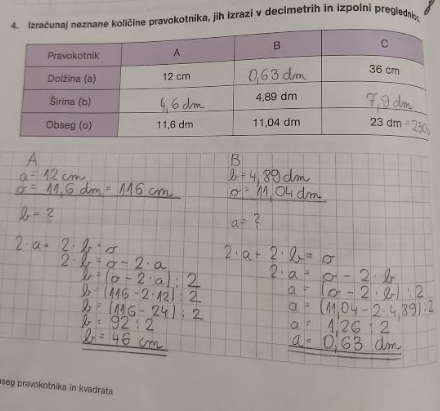 8
4. Izračunaj neznane količine pravokotnika, jih izrazi v decimetrih in izpolni preglednico.
Pravokotnik A B C
Dolžina (a) 12 cm 0,63 dm 36 cm
Širina (b) 4,6 dm 4,89 dm 7,9 dm
Obseg (o) 11,6 dm 11,04 dm 23 dm = 230
A
a = 12 cm
o = 11,6 dm = 116 cm
b = ?
2·a + 2·b = o
2·b = o - 2·a
b = (o - 2·a) : 2
b = (116 - 2·12) : 2
b = (116 - 24) : 2
b = 92 : 2
b = 46 cm
B
b = 4,89 dm
o = 11,04 dm
a = ?
2·a + 2·b = o
2·a = o - 2·b
a = (o - 2·b) : 2
a = (11,04 - 2·4,89) : 2
a = 1,26 : 2
a = 0,63 dm
seg pravokotnika in kvadrata